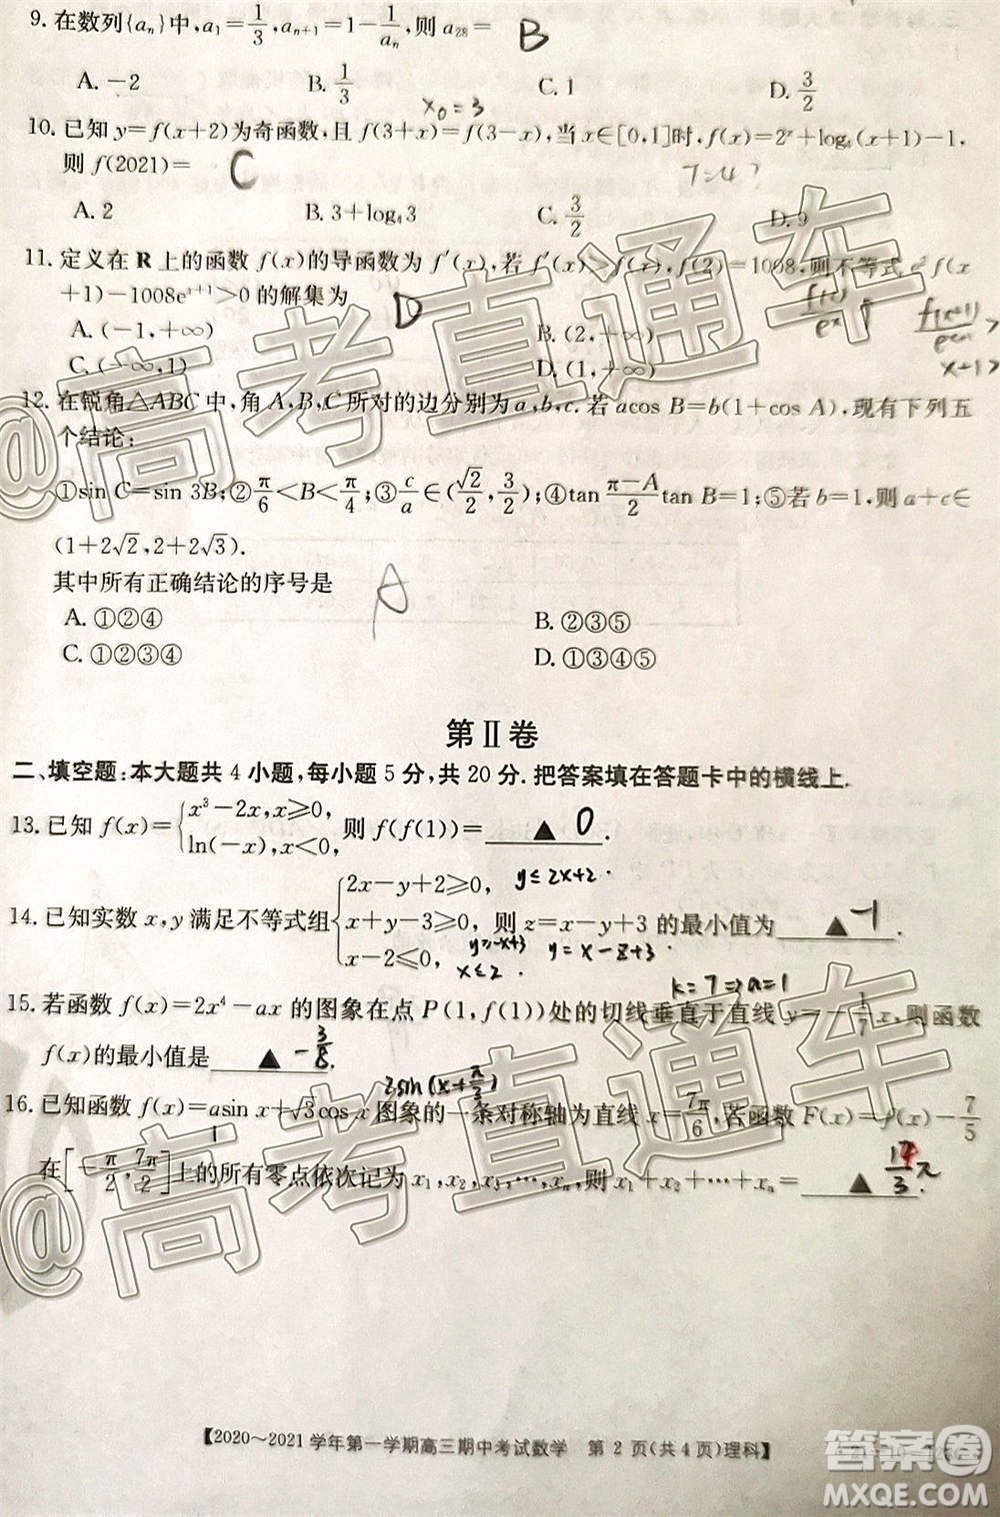 9. 在数列{aₙ}中,a₁=1/3,aₙ₊₁=1-1/aₙ,则 a₂₈= B
A. -2 B. 1/3 C. 1 D. 3/2
x₀=3
10. 已知 y=f(x+2)为奇函数,且 f(3+x)=f(3-x),当 x∈[0,1]时,f(x)=2ˣ+log₄(x+1)-1,
则 f(2021)= C T=4?
A. 2 B. 3+log₄3 C. 3/2 D. 9
11. 定义在 R 上的函数 f(x)的导函数为 f′(x),若 f′(x) f(x),f(2)=1008,则不等式 f(x
+1)-1008eˣ⁺¹>0的解集为 D f(x)/eˣ f(x+1)/eˣ⁺¹ >
A. (-1,+∞) B. (2,+∞)
x+1>
C. (-∞,1) D. (1,+∞)
12. 在锐角△ABC 中,角 A,B,C 所对的边分别为 a,b,c. 若 acos B=b(1+cos A),现有下列五
个结论:
①sin C=sin 3B;②π/6<B<π/4;③c/a∈(√2/2,3/2);④tan (π-A)/2 tan B=1;⑤若 b=1,则 a+c∈
(1+2√2,2+2√3).
其中所有正确结论的序号是 A
A. ①②④ B. ②③⑤
C. ①②③④ D. ①②③④⑤
第Ⅱ卷
二、填空题:本大题共 4 小题,每小题 5 分,共 20 分. 把答案填在答题卡中的横线上.
13. 已知 f(x)={x³-2x,x≥0, ln(-x),x<0, 则 f(f(1))= ▲ 0 .
y≤2x+2
14. 已知实数 x,y 满足不等式组{2x-y+2≥0, x+y-3≥0, x-2≤0, 则 z=x-y+3 的最小值为 ▲ -1 .
y≥-x+3 y=x-z+3
x≤2
k=7⇒a=1
15. 若函数 f(x)=2x⁴-ax 的图象在点 P(1,f(1))处的切线垂直于直线 y=-1/7x,则函数
f(x)的最小值是 ▲ -3/8 .
2sin(x+π/3)
16. 已知函数 f(x)=asin x+√3cos x 图象的一条对称轴为直线 x=7π/6,若函数 F(x)=f(x)-7/5
1
在[-π/2,7π/2]上的所有零点依次记为 x₁,x₂,x₃,…,xₙ,则 x₁+x₂+…+xₙ= ▲ .
【2020~2021 学年第一学期高三期中考试数学 第 2 页(共 4 页)理科】
@高考直通车
@高考直通车
答案圈
MXQE.COM